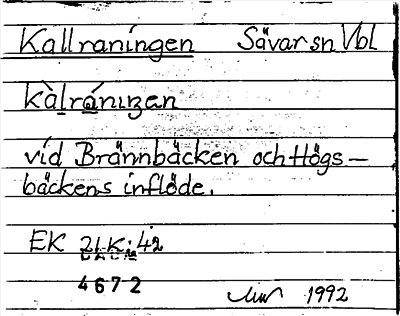 Kallraningen Sävar sn Vbl
kàlránıŋen
vid Brännbäcken och Högs-
bäckens inflöde.
EK 21K:42
4672
1992